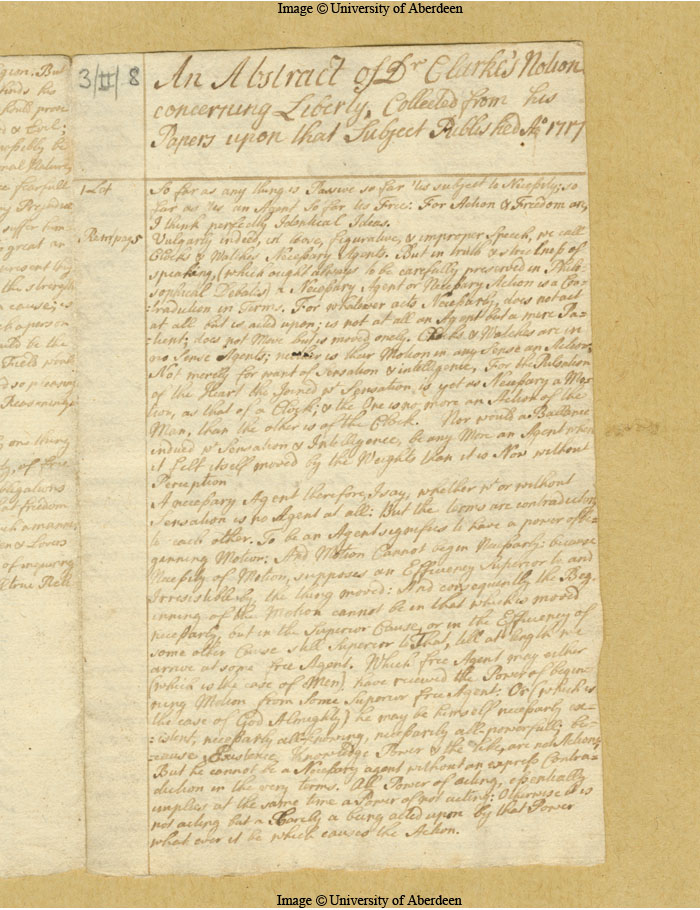 Image © University of Aberdeen
gion. But
kinds he
should prove
& Evil;
possibly be
fearfull
Prejudice
suffer him
great an
represent they
the strength
a cause; is
a person
be the
Field
so many
Reasoning
one thing
of
obligations
freedom
such a manner
& Lovers
of enquiring
true
3/II/8
An Abstract of Dr Clarke's Notion
concerning Liberty, Collected from his
Papers upon that Subject Published Ao 1717
1 Let
So far as any thing is Passive so far 'tis subject to Necessity; so
far as 'tis an Agent So far tis Free: For Action & Freedom are,
I think perfectly Identical Ideas.
pag 5
Vulgarly indeed, in loose, figurative, & improper Speech, we call
Clocks & Watches Necessary Agents. But in truth & strictness of
speaking, (which ought always to be carefully preserved in Philo-
sophical Debates) a Necessary Agent or Necessary Action is a Con-
-tradiction in Terms. For whatever acts Necessarily, does not act
at all but is acted upon; is not at all an Agent but a mere Pa-
tient; does not Move but is moved onely. Clocks & Watches are in
no Sense Agents; neither is their Motion in any Sense an Action.
Not merely for want of Sensation & intelligence, For the Pulsation
of the Heart tho Joined wt Sensation, is yet as Necessary a Mo-
tion, as that of a Clock; & the One is no more an Action of the
Man, than the other is of the Clock. Nor would a Ballance
indued wt Sensation & Intelligence, be any More an Agent when
it felt itself moved by the Weights than it is Now without
Perception
A necessary Agent therefore, I say, whether wt or without
Sensation is no Agent at all: But the terms are contradictory
to each other. To be an Agent signifies to have a power of be-
ginning Motion: And Motion Cannot begin Necessarly: because
Necessity of Motion, supposes an Efficiency Superior to, and
Irresistible by the thing moved: And consequently the Beg-
inning of the Motion cannot be in that which is moved
necessarly, but in the Superior Cause, or in the Efficiency of
some other Cause still Superior to That, till at length we
arrive at some Free Agent. Which free Agent may either
(which is the case of Men) have received the Power of begin-
ning Motion from Some Superior free Agent: Or (which is
the case of God Almighty) he may be himself necessarly ex-
-istent, necessarly all-knowing, necessarily all-powerfull; be-
-cause Existence, Knowledge Power & the like, are not Actions,
But he cannot be a Necessary agent without an express Contra-
diction in the very terms. All Power of acting, essentially
implies at the same time a Power of not acting: Otherwise it is
not acting but a Barely a being acted upon by that Power
what ever it be which causes the Action.
Image © University of Aberdeen